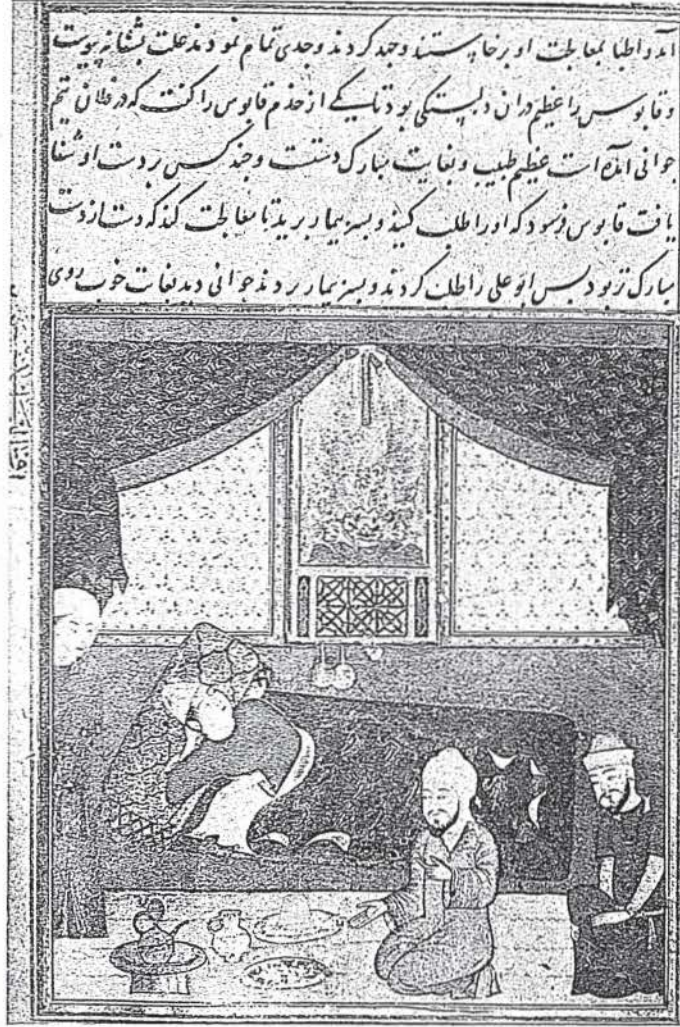 آمد و اطبا بمعالجت او برخاستند و جهد کردند و جدی تمام نمودند علت بشفا نه پیوست
و قابوس را عظیم دران دلبستگی بود تا یکی از خدم قابوس را کفت که در فلان تیم
جوانی امده است عظیم طبیب و بغایت مبارک دست و چند کس بر دست او شفا
یافت قابوس فرمود که او را طلب کنید و بسر بیمار برید تا معالجت کند که دست از دست
مبارک تر بود بس ابو علی را طلب کردند و بسر بیمار بردند جوانی دید بغایت خوب روی